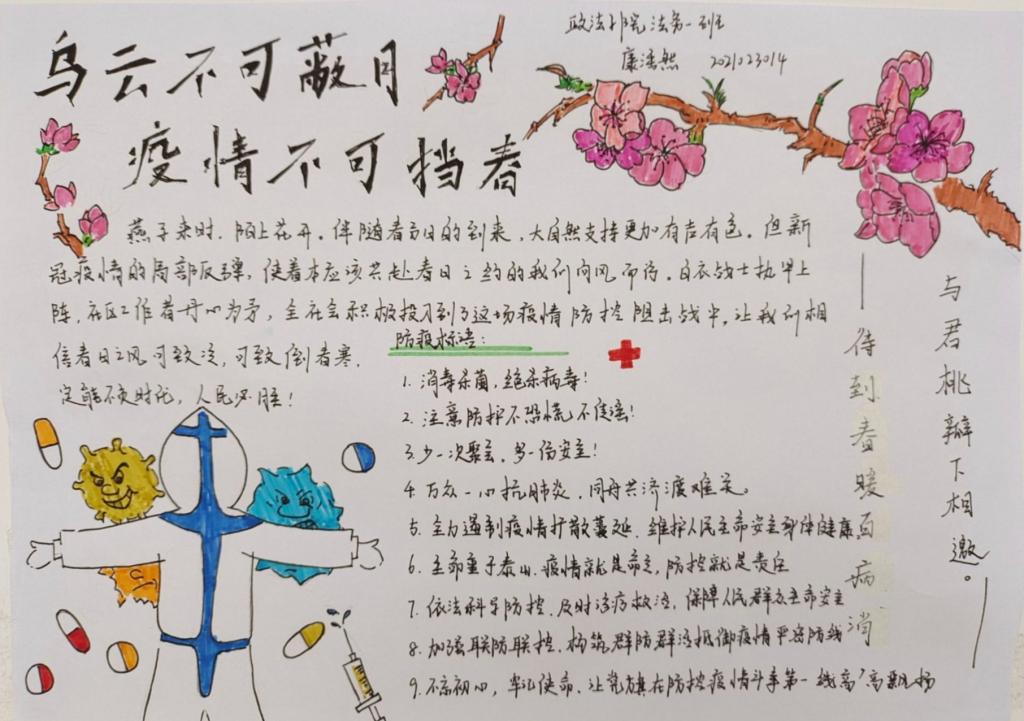 乌云不可蔽月
疫情不可挡春
政法学院法务一班
康浩然 2021023014
燕子来时，陌上花开。伴随着春日的到来，大自然支持更加有声有色。但新
冠疫情的局部反弹，使着本应该共赴春日之约的我们向风而待。白衣战士执甲上
阵，社区工作者丹心为矛，全社会积极投入到了这场疫情防控阻击战中，让我们相
信春日之风可致冷，可致倒春寒，
定能不负时托，人民必胜！
防疫标语：
1. 消毒杀菌，绝杀病毒！
2. 注意防护不恐慌不信谣！
3. 少一次聚会，多一份安全！
4. 万众一心抗肺炎，同舟共济渡难关。
5. 全力遏制疫情扩散蔓延，维护人民生命安全身体健康
6. 生命重于泰山，疫情就是命令，防控就是责任
7. 依法科学防控，及时治疗救治，保障人民群众生命安全
8. 加强联防联控，构筑群防群治抵御疫情严密防线
9. 不忘初心，牢记使命，让党旗在防控疫情斗争第一线高高飘扬
——待到春暖百病消
与君桃瓣下相邀。——